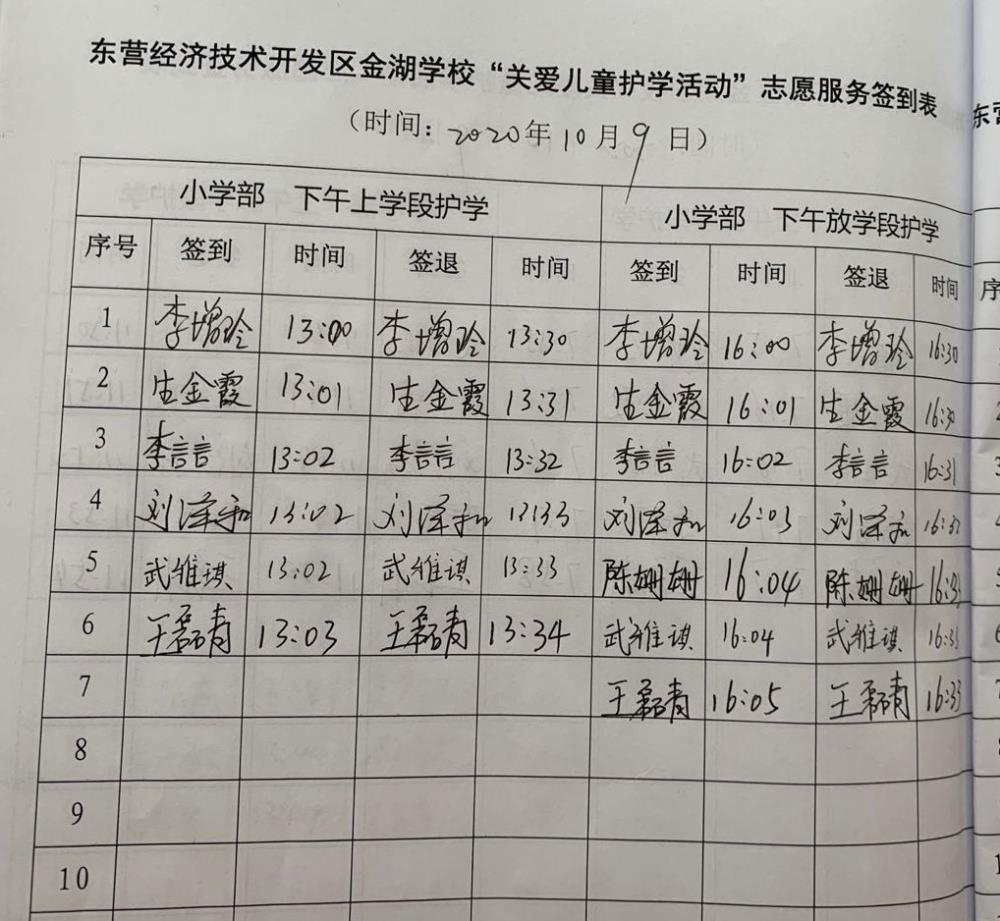 东营经济技术开发区金湖学校“关爱儿童护学活动”志愿服务签到表
（时间：2020年10月9日）
小学部 下午上学段护学 小学部 下午放学段护学
序号 签到 时间 签退 时间 签到 时间 签退 时间
1 李增玲 13:00 李增玲 13:30 李增玲 16:00 李增玲 16:30
2 生金霞 13:01 生金霞 13:31 生金霞 16:01 生金霞 16:30
3 李言言 13:02 李言言 13:32 李言言 16:02 李言言 16:31
4 刘泽和 13:02 刘泽和 13:33 刘泽和 16:03 刘泽和
5 武维琪 13:02 武维琪 13:33 陈姗姗 16:04 陈姗姗
6 王磊青 13:03 王磊青 13:34 武维琪 16:04 武维琪 16:33
7 王磊青 16:05 王磊青 16:33
8
9
10